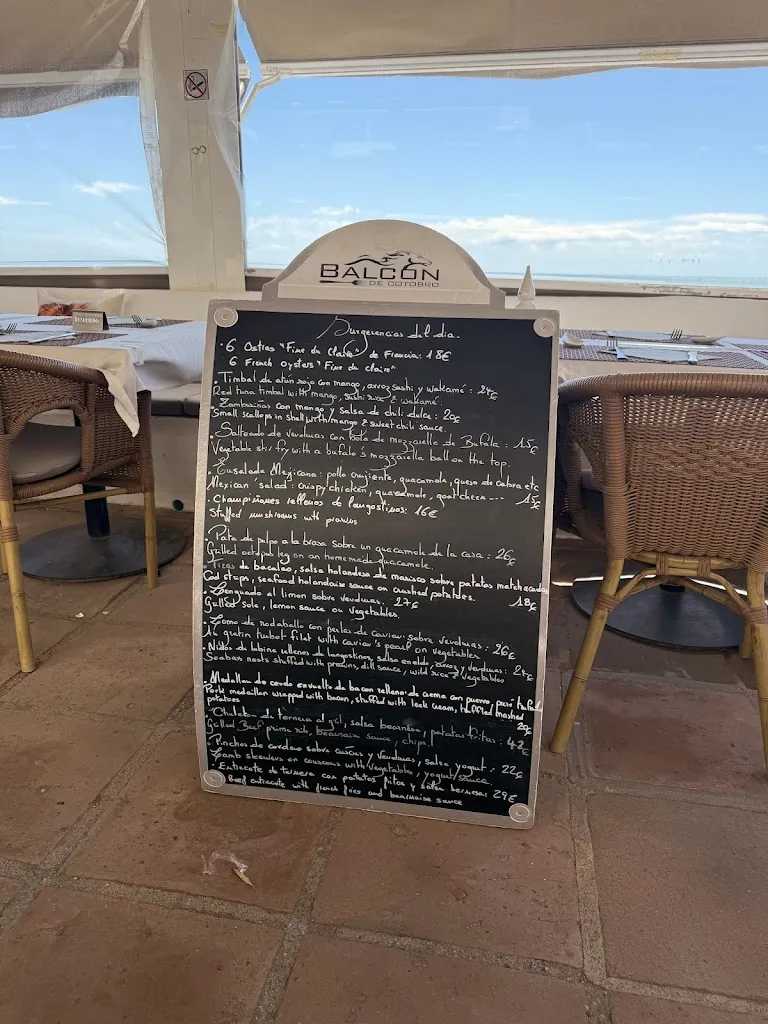 BALCÓN
DE COTOBRO
Sugerencias del dia.
· 6 Ostras "Fine du Claire" de Francia: 18€
6 French Oysters "Fine du claire"
· Timbal de atún rojo con mango, arroz sushi y wakamé: 24€
Red tuna timbal with mango, sushi rice & wakamé.
· Zamburiñas con mango y salsa de chili dulce: 20€
Small scallops in shell with mango & sweet chili sauce.
· Salteado de verduras con bola de mozzarella de Bufala: 15€
Vegetable stir fry with a bufalo's mozzarella ball on the top.
· Ensalada Mejicana: pollo crujiente, guacamole, queso de cabra etc
Mexican salad: crispy chicken, guacamole, goat cheese --- 15€
· Champiñones rellenos de langostinos: 16€
Stuffed mushrooms with prawns
· Pata de pulpo a la brasa sobre un guacamole de la casa: 26€
Grilled octopus leg on an homemade guacamole.
· Tiras de bacalao, salsa holandesa de marisco sobre patatas
Cod strips, seafood holandaise sauce on crushed potatoes. 18€
· Lenguado al limon sobre verduras: 27€
Grilled sole, lemon sauce on vegetables.
· Lomo de rodaballo con perlas de caviar sobre verduras: 26€
Au gratin turbot filet with caviar's pearl on vegetables
· Nidos de lubina rellenos de langostinos, salsa eneldo, arroz y verduras:
Seabass nests stuffed with prawns, dill sauce, wild rice & vegetables
· Medallon de cerdo envuelto de bacon relleno de crema con puerro, puré
Pork medaillon wrapped with bacon, stuffed with leek cream, truffled mashed
potatoes
· Chuleton de ternera al gril, salsa bearnesa, patatas fritas: 42€
Grilled Beef prime rib, bearnaise sauce, chips.
· Pinchos de cordero sobre cuscus y verduras, salsa yogurt: 22€
Lamb skewers on couscous with vegetables, yogurt sauce
· Entrecote de ternera con patatas fritas y salsa bernesa: 29€
Beef entrecote with french fries and bearnaise sauce